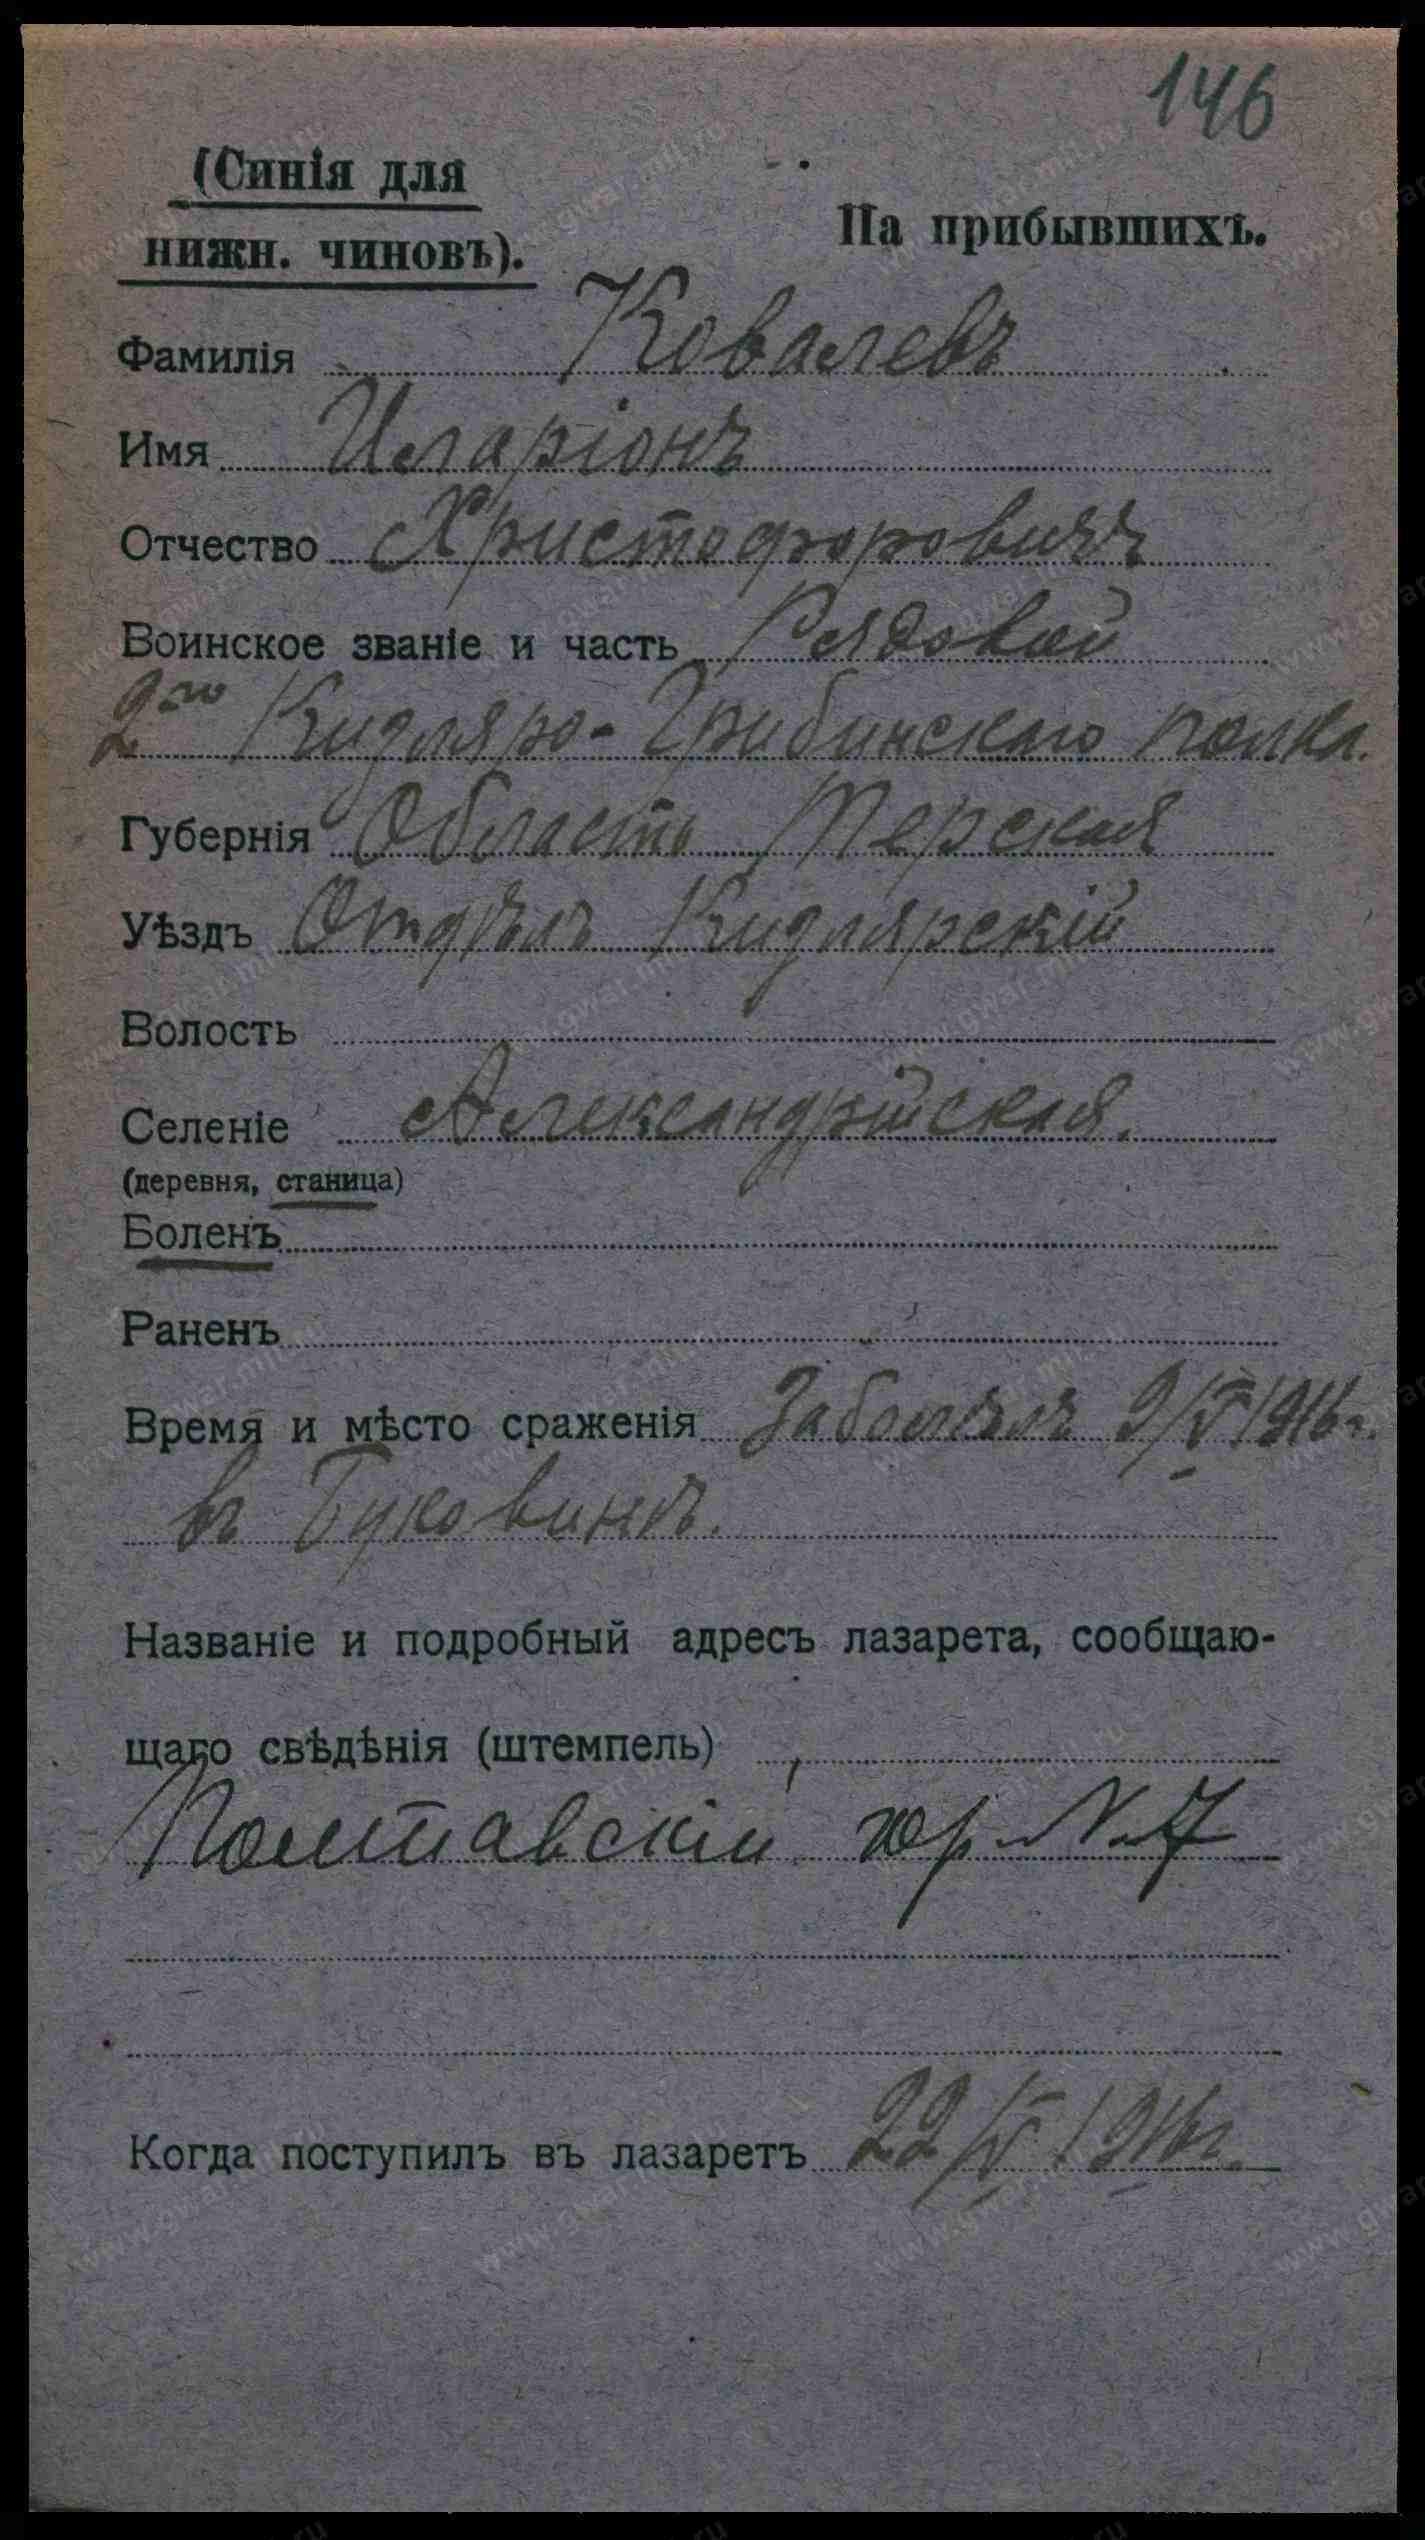 146
(Синія для
нижн. чиновъ).
На прибывшихъ.
Фамилія Ковалевъ
Имя Иларіонъ
Отчество Христофоровичъ
Воинское званіе и часть Рядовой
2го Кизляро-Гребинскаго полка.
Губернія Область Терская
Уѣздъ Отдѣлъ Кизлярскій
Волость
Селеніе Александрійская.
(деревня, станица)
Боленъ
Раненъ
Время и мѣсто сраженія Заболѣлъ 9/V 1916г.
въ Буковинѣ.
Названіе и подробный адресъ лазарета, сообщаю-
щаго свѣдѣнія (штемпель)
Полтавскій хир. N. 7
Когда поступилъ въ лазаретъ 22/V 1916г.